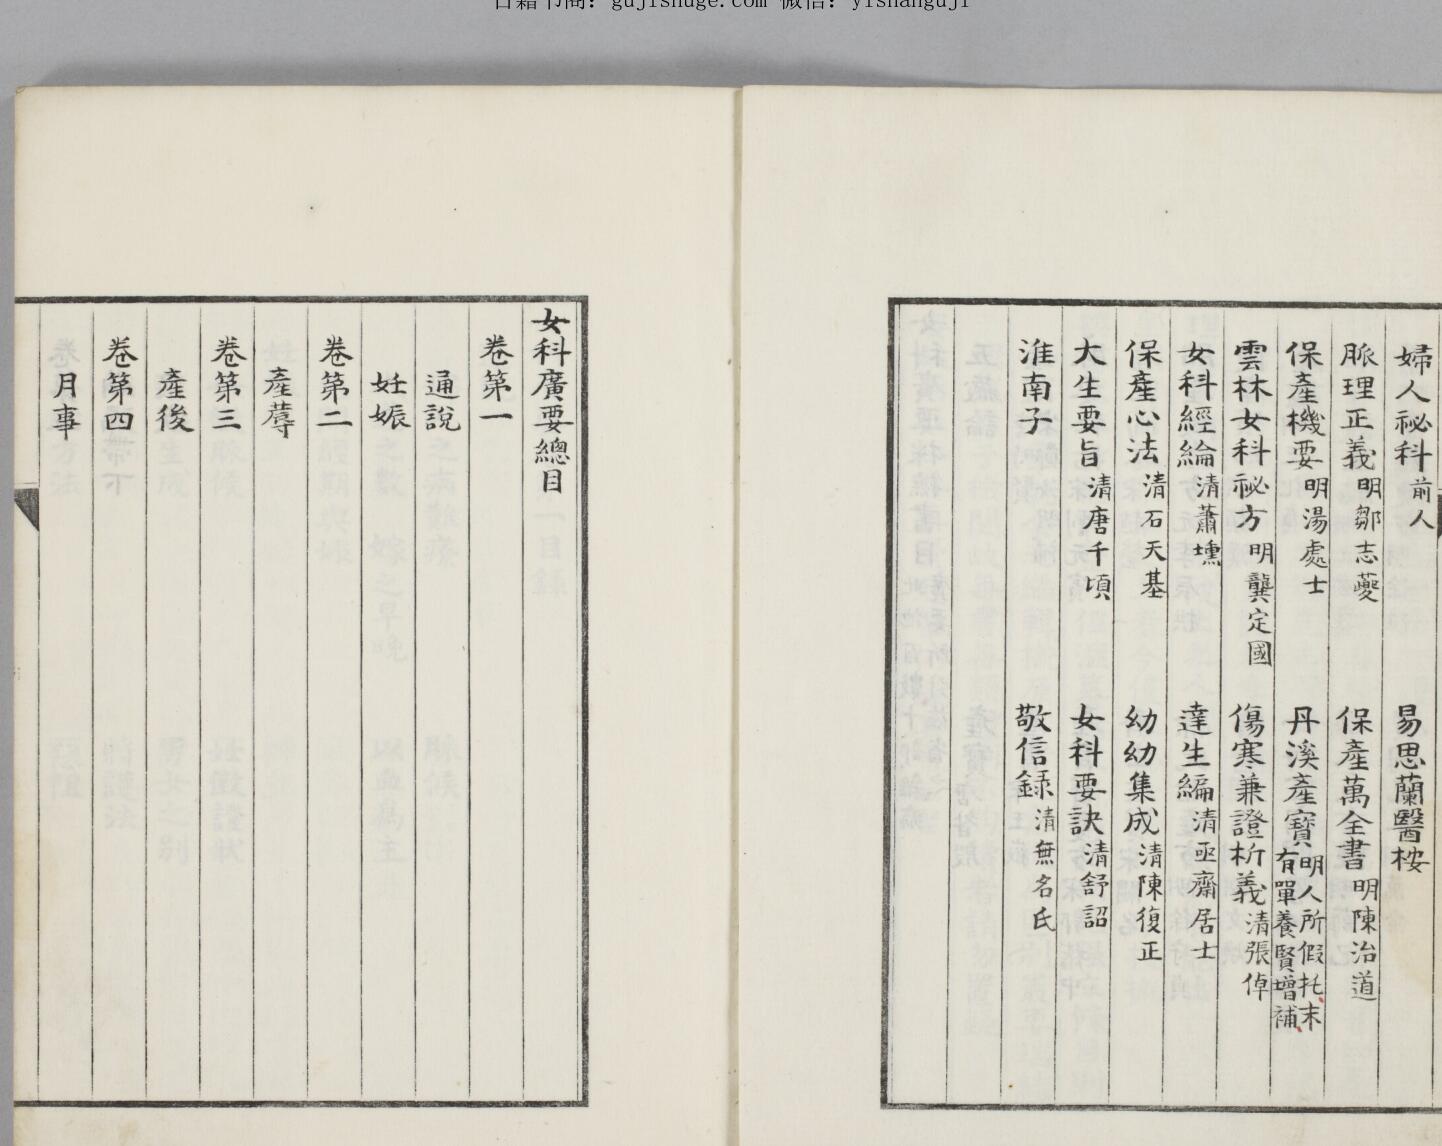 古籍书阁：gujishuge.com 微信：yishanguji
婦人祕科 前人 易思蘭醫桉
脈理正義 明鄒志夔 保產萬全書 明陳治道
保產機要 明湯處士 丹溪產寶 明人所假托末有單養賢增補
雲林女科祕方 明龔定國 傷寒兼證析義 清張倬
女科經綸 清蕭壎 達生編 清亟齋居士
保產心法 清石天基 幼幼集成 清陳復正
大生要旨 清唐千頃 女科要訣 清舒詔
淮南子 敬信録 清無名氏
女科廣要總目
卷第一
通說
妊娠
卷第二
產蓐
卷第三
產後
卷第四
月事